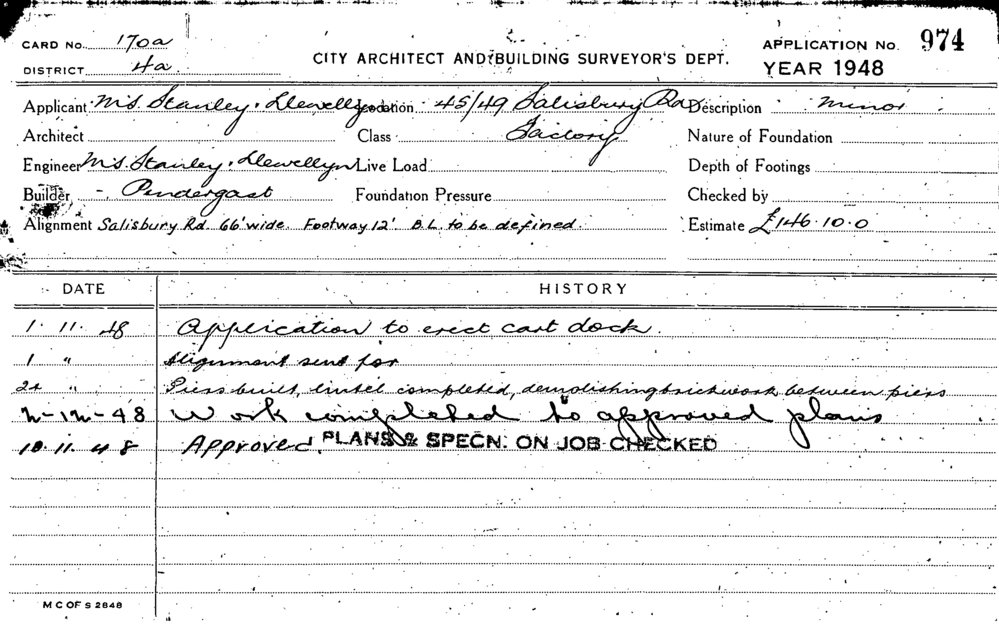 CARD No. 170a
DISTRICT 4a
CITY ARCHITECT AND BUILDING SURVEYOR'S DEPT.
APPLICATION No. 974
YEAR 1948
Applicant M/s. Stanley & Llewellyn Location 45/49 Salisbury Rd Description Minor
Architect Class Factory Nature of Foundation
Engineer M/s. Stanley & Llewellyn Live Load Depth of Footings
Builder - Pendergast Foundation Pressure Checked by
Alignment Salisbury Rd. 66' wide. Footway 12'. B.L. to be defined. Estimate £146.10.0
DATE HISTORY
1. 11. 48 Application to erect cart dock.
1 " Alignment sent for
24 " Piers built, lintel completed, demolishing brickwork between piers
2-12-48 Work completed to approved plans
10.11.48 Approved. PLANS & SPECN. ON JOB CHECKED
M C OF S 2848